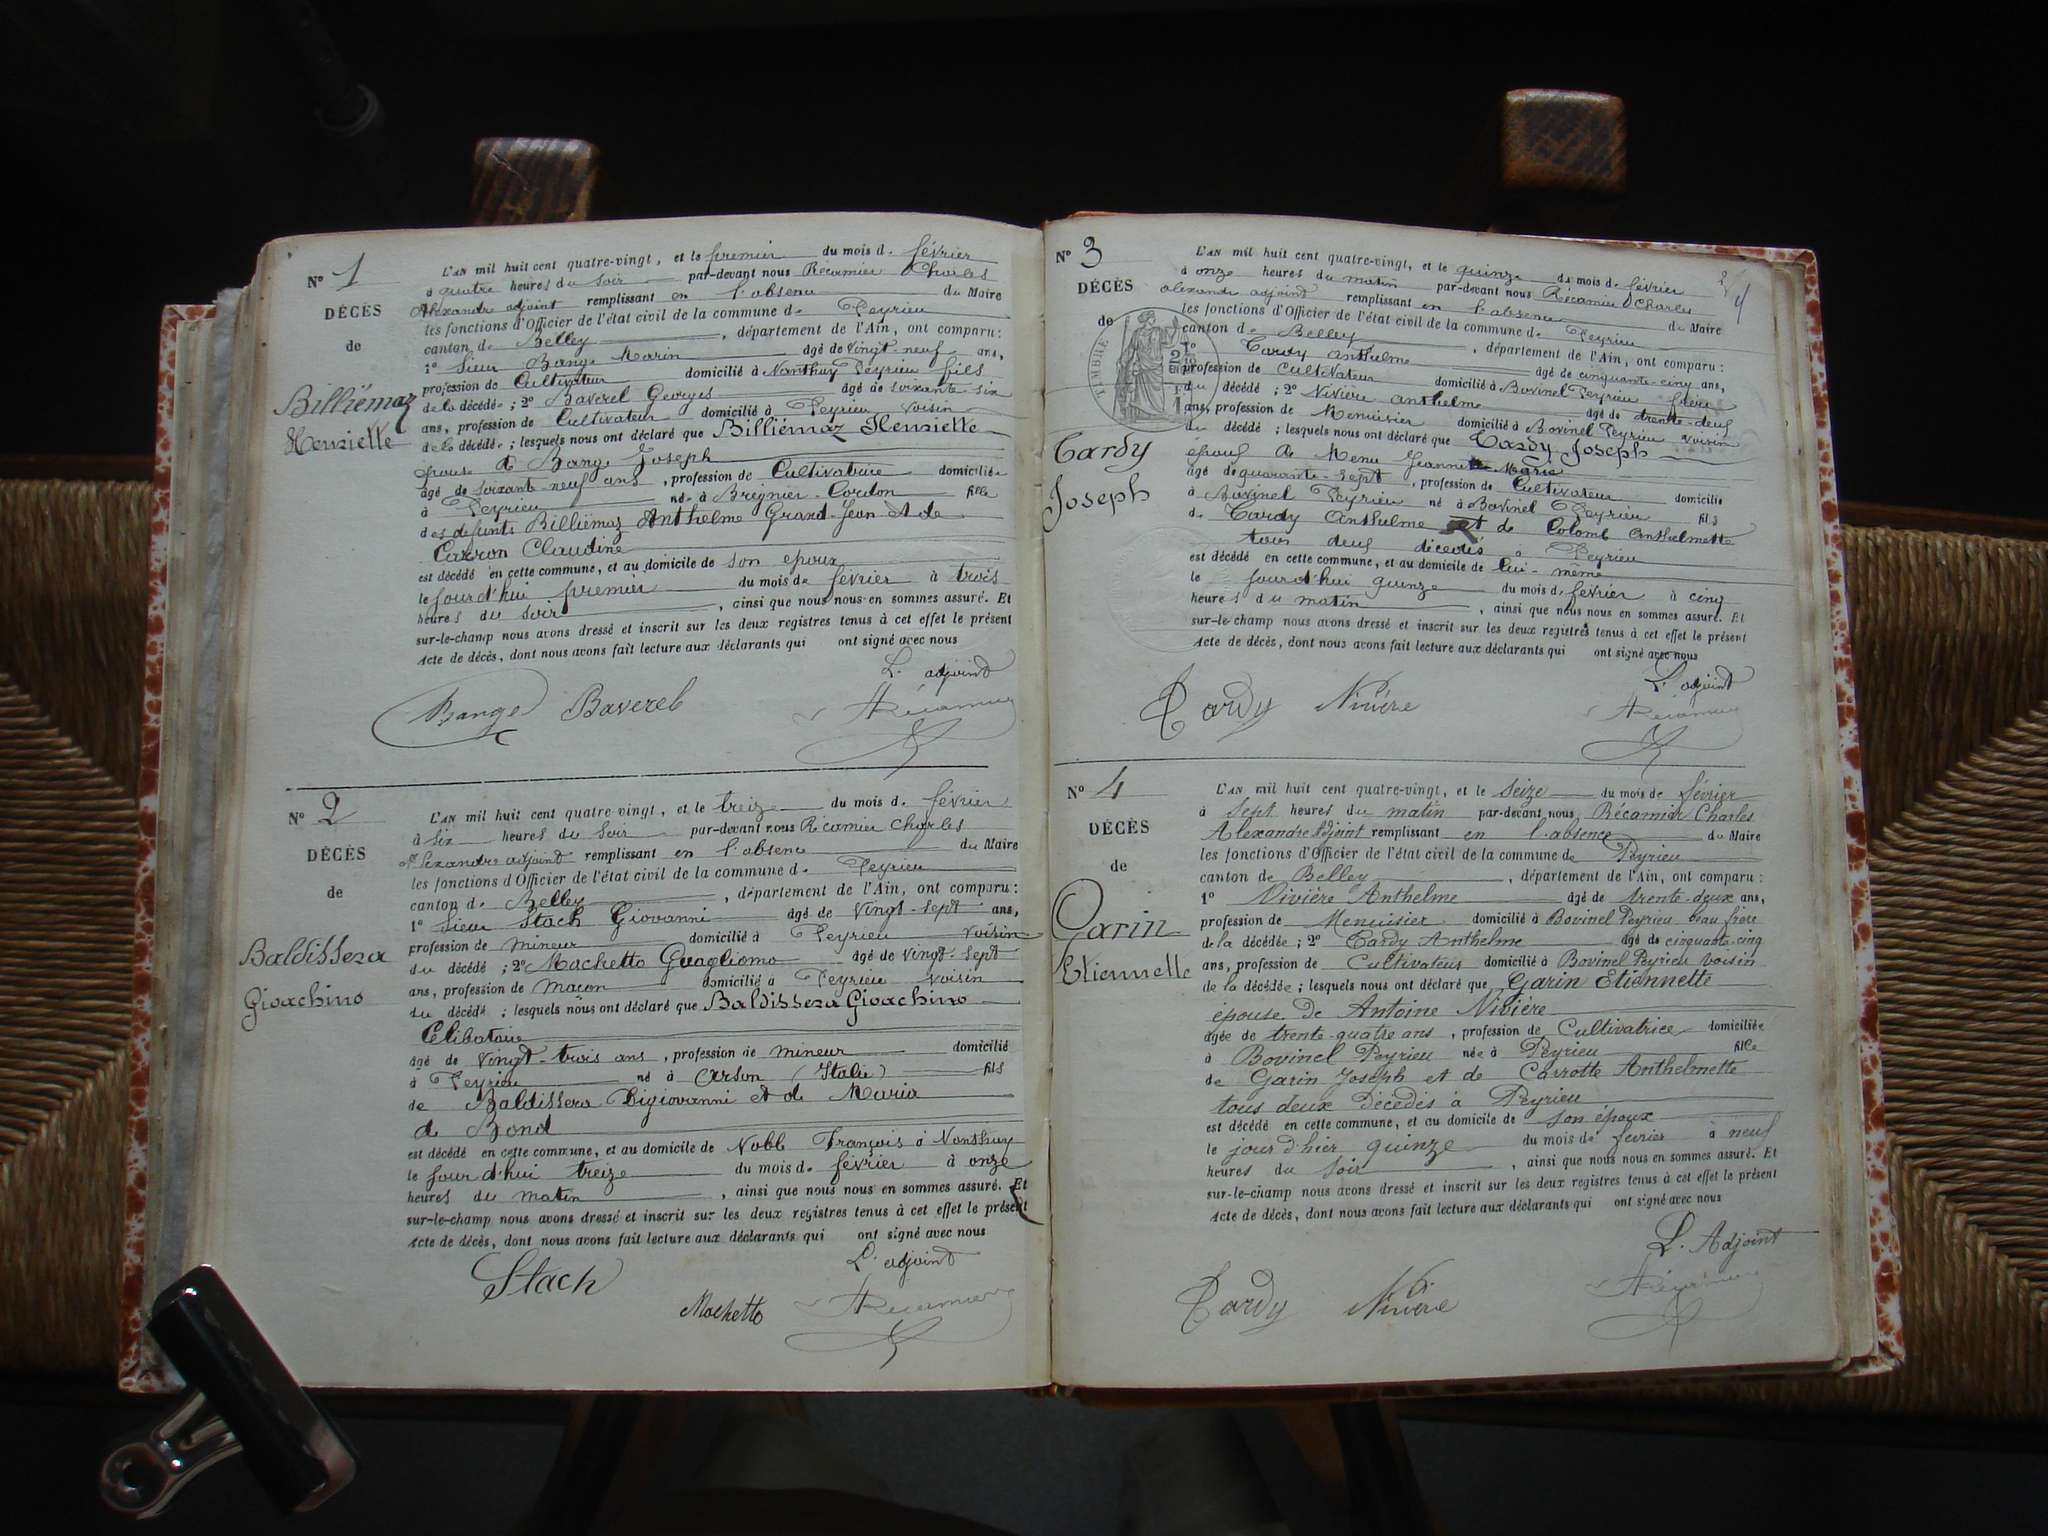 N° 1
DÉCÈS
de
Billiémaz
Henriette
L'AN mil huit cent quatre-vingt, et le premier du mois de février
à quatre heures du soir par-devant nous Récamier Charles
Alexandre adjoint remplissant en l'absence du Maire
les fonctions d'Officier de l'état civil de la commune de Peyrieu
canton de Belley, département de l'Ain, ont comparu :
1° Sieur Bange Marin âgé de vingt-neuf ans,
profession de Cultivateur domicilié à Nanthuy Peyrieu fils
de la décédée ; 2° Baverel Georges âgé de soixante-six
ans, profession de Cultivateur domicilié à Peyrieu voisin
de la décédée ; lesquels nous ont déclaré que Billiémaz Henriette
épouse de Bange Joseph
âgé de soixante-neuf ans, profession de Cultivatrice domiciliée
à Peyrieu née à Brégnier-Cordon fille
des defunts Billiémaz Anthelme Grand-Jean et de
Carron Claudine
est décédé en cette commune, et au domicile de son epoux
le jourd'hui premier du mois de février à trois
heures du soir, ainsi que nous nous en sommes assuré. Et
sur-le-champ nous avons dressé et inscrit sur les deux registres tenus à cet effet le présent
Acte de décès, dont nous avons fait lecture aux déclarants qui ont signé avec nous
L. adjoint
Bange Baverel Récamier
N° 2
DÉCÈS
de
Baldissera
Gioachino
L'AN mil huit cent quatre-vingt, et le treize du mois de février
à six heures du soir par-devant nous Récamier Charles
Alexandre adjoint remplissant en l'absence du Maire
les fonctions d'Officier de l'état civil de la commune de Peyrieu
canton de Belley, département de l'Ain, ont comparu :
1° Sieur Stach Giovanni âgé de vingt-sept ans,
profession de mineur domicilié à Peyrieu voisin
du décédé ; 2° Machetto Guagliomo âgé de vingt-sept
ans, profession de maçon domicilié à Peyrieu voisin
du décédé ; lesquels nous ont déclaré que Baldissera Gioachino
Célibataire
âgé de vingt-trois ans, profession de mineur domicilié
à Peyrieu né à Arson (Italie) fils
de Baldissera Digiovanni et de Maria
de Bond
est décédé en cette commune, et au domicile de Nobb François à Nanthuy
le jourd'hui treize du mois de février à onze
heures du matin, ainsi que nous nous en sommes assuré. Et
sur-le-champ nous avons dressé et inscrit sur les deux registres tenus à cet effet le présent
Acte de décès, dont nous avons fait lecture aux déclarants qui ont signé avec nous
L. adjoint
Stach
Machetto Récamier
N° 3
DÉCÈS
de
TIMBRE
Tardy
Joseph
4
L'AN mil huit cent quatre-vingt, et le quinze du mois de février
à onze heures du matin par-devant nous Récamier Charles
alexandre adjoint remplissant en l'absence du Maire
les fonctions d'Officier de l'état civil de la commune de Peyrieu
canton de Belley, département de l'Ain, ont comparu :
1° Tardy Anthelme âgé de cinquante-cinq ans,
profession de Cultivateur domicilié à Bovinel Peyrieu frère
du décédé ; 2° Nivière anthelme âgé de trente-deux
ans, profession de Menuisier domicilié à Bovinel Peyrieu voisin
du décédé ; lesquels nous ont déclaré que Tardy Joseph
époux de Menu Jeanne Marie
âgé de quarante-sept, profession de Cultivateur domicilié
à Bovinel Peyrieu né à Bovinel Peyrieu fils
de Tardy Anthelme et de Colomb Anthelmette
tous deux décédés à Peyrieu
est décédé en cette commune, et au domicile de lui-même
le jourd'hui quinze du mois de février à cinq
heures du matin, ainsi que nous nous en sommes assuré. Et
sur-le-champ nous avons dressé et inscrit sur les deux registres tenus à cet effet le présent
Acte de décès, dont nous avons fait lecture aux déclarants qui ont signé avec nous
L. adjoint
Tardy Nivière Récamier
N° 4
DÉCÈS
de
Garin
Etiennette
L'AN mil huit cent quatre-vingt, et le Seize du mois de février
à sept heures du matin par-devant nous Récamier Charles
Alexandre Adjoint remplissant en l'absence du Maire
les fonctions d'Officier de l'état civil de la commune de Peyrieu
canton de Belley, département de l'Ain, ont comparu :
1° Nivière Anthelme âgé de trente-deux ans,
profession de Menuisier domicilié à Bovinel Peyrieu beau frère
de la décédée ; 2° Tardy Anthelme âgé de cinquante-cinq
ans, profession de Cultivateur domicilié à Bovinel Peyrieu voisin
de la décédée ; lesquels nous ont déclaré que Garin Etiennette
épouse de Antoine Nivière
âgée de trente-quatre ans, profession de Cultivatrice domiciliée
à Bovinel Peyrieu née à Peyrieu fille
de Garin Joseph et de Carrotte Anthelmette
tous deux décédés à Peyrieu
est décédé en cette commune, et au domicile de son époux
le jour d'hier quinze du mois de février à neuf
heures du soir, ainsi que nous nous en sommes assuré. Et
sur-le-champ nous avons dressé et inscrit sur les deux registres tenus à cet effet le présent
Acte de décès, dont nous avons fait lecture aux déclarants qui ont signé avec nous
L. Adjoint
Tardy Nivière Récamier